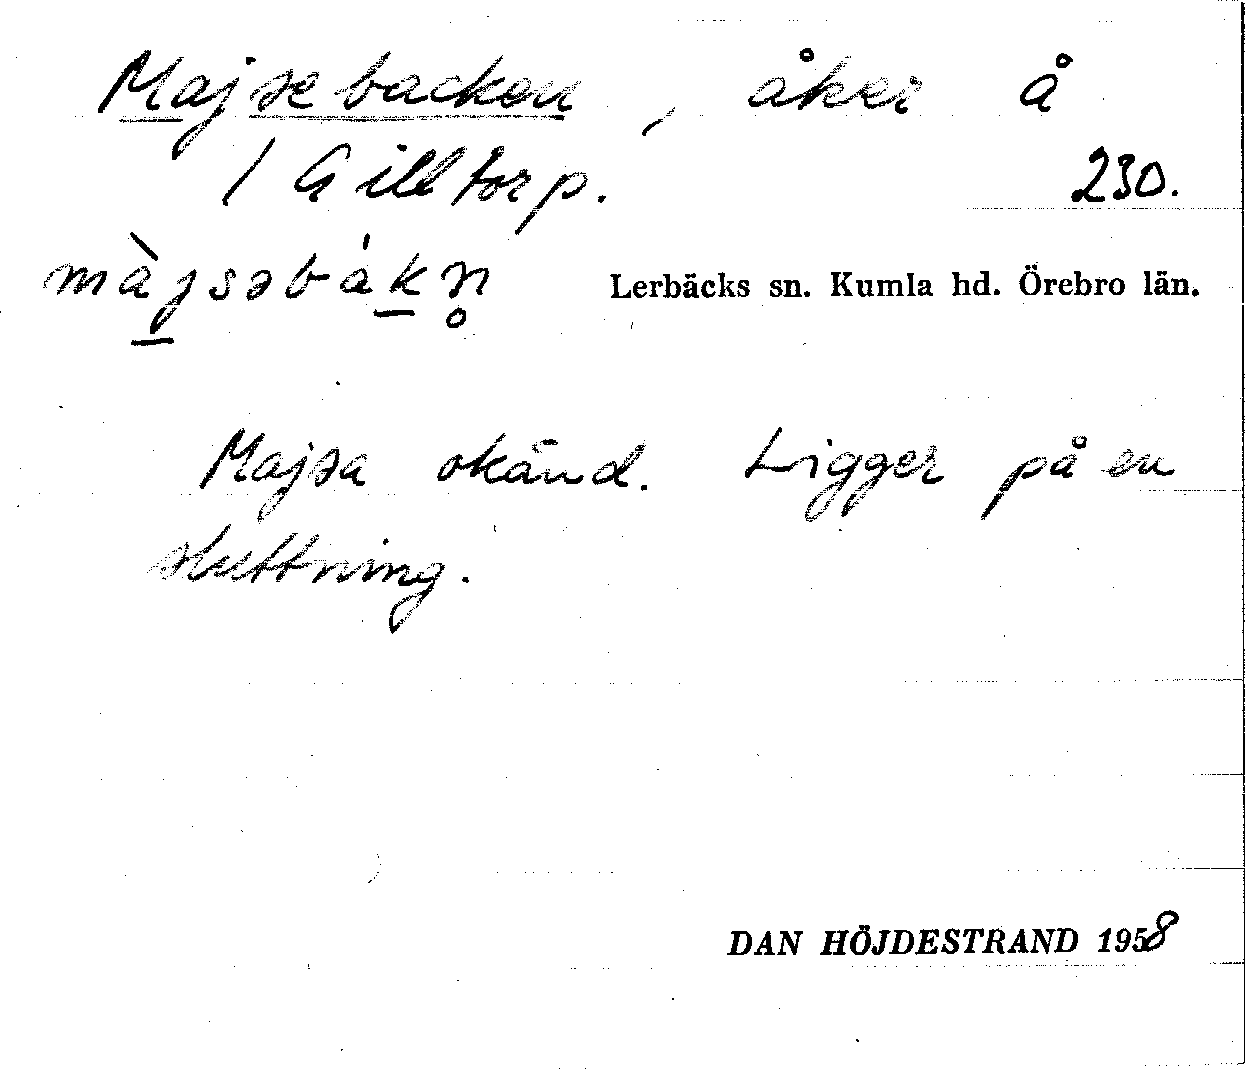 Majsebacken, åker å
1 Gilltorp. 230.
màjsəbákn̥ Lerbäcks sn. Kumla hd. Örebro län.
Majsa okänd. Ligger på en
sluttning.
DAN HÖJDESTRAND 1958